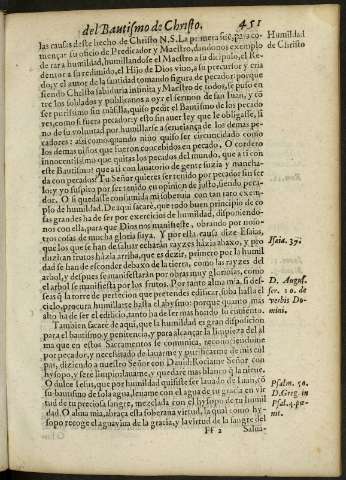 del Bautismo de Christo. 451
las causas deste hecho de Christo N.S. La primera fue, para co-
mençar su oficio de Predicador y Maestro, dandonos exemplo
de rara humildad, humillandose el Maestro a su dicipulo, el Re-
dentor a su redimido, el Hijo de Dios viuo, a su precursor y cria
do, y el autor de la santidad tomando figura de pecador: porque
siendo Christo sabiduria infinita y Maestro de todos, se puso en
tre los soldados y publicanos a oyr el sermon de san Iuan, y cõ
ser purissimo sin mãsilla, quiso pedir el Bautismo de los pecado
res, como si fuera pecador: y esto sin auer ley que le obligasse, si
no de su voluntad por humillarse a semejança de los demas pe-
cadores: assi como quando niño quiso ser circuncidado como
los demas niños que fueron concebidos en pecado. O cordero
innocentissimo que quitas los pecados del mundo, que a ti con
este Bautismo? que a ti con lauatorio de gente suzia y mancha-
da con pecados? Tu Señor quieres ser tenido por pecador sin ser
lo; y yo suspiro por ser tenido en opinion de justo, siendo peca-
dor. O si quedasse consumida mi soberuia con tan raro exem-
plo de humildad. De aqui sacarè, que todo buen principio de co
sas grandes ha de ser por exercicios de humildad, disponiendo-
nos con ella, para que Dios nos manifieste, obrando por noso-
tros cosas de mucha gloria suya. Y por esta causa dize Esaias,
que los que se han de saluar echaràn rayzes hàzia abaxo, y pro
duziràn frutos hàzia arriba, que es dezir, primero por la humil
dad se han de esconder debaxo de la tierra, como las rayzes del
arbol, y despues se manifestaràn por obras muy gloriosas, como
el arbol se manifiesta por los frutos. Por tanto alma mia, si des-
seas q̃ la torre de perfecion que pretendes edificar, suba hasta el
cielo, procura humillarte hasta el abysmo: porque quanto mas
alto ha de ser el edificio, tanto ha de ser mas hondo su cimiento.
Tambien sacarè de aqui, que la humildad es gran disposicion
para el bautismo y penitencia, y para alcançar la limpieza del al
ma que en estos Sacramentos se comunica, reconociendome
por pecador, y necessitado de lauarme y purificarme de mis cul
pas, diziendo a nuestro Señor con Dauid: Rociarme Señor con
hysopo, y serè limpio lauame, y quedarè mas blanco q̃ la nieue.
O dulce Iesus, que por humildad quisiste ser lauado de Iuan, cõ
su bautismo de sola agua, lauame con el agua de tu gracia en vir
tud de tu preciosa sangre, mezclada con el hysopo de tu humil
dad. O alma mia, abraça esta soberana virtud, la qual como hy-
sopo recoge el agua viua de la gracia, y la virtud de la sangre del
Ff 2 Salua-
Humildad
de Christo
Isaia. 37.
D. Augus.
ser. 10. de
verbis Do-
mini.
Psalm. 50.
D. Greg. in
Psal. 4. pœ-
nit.